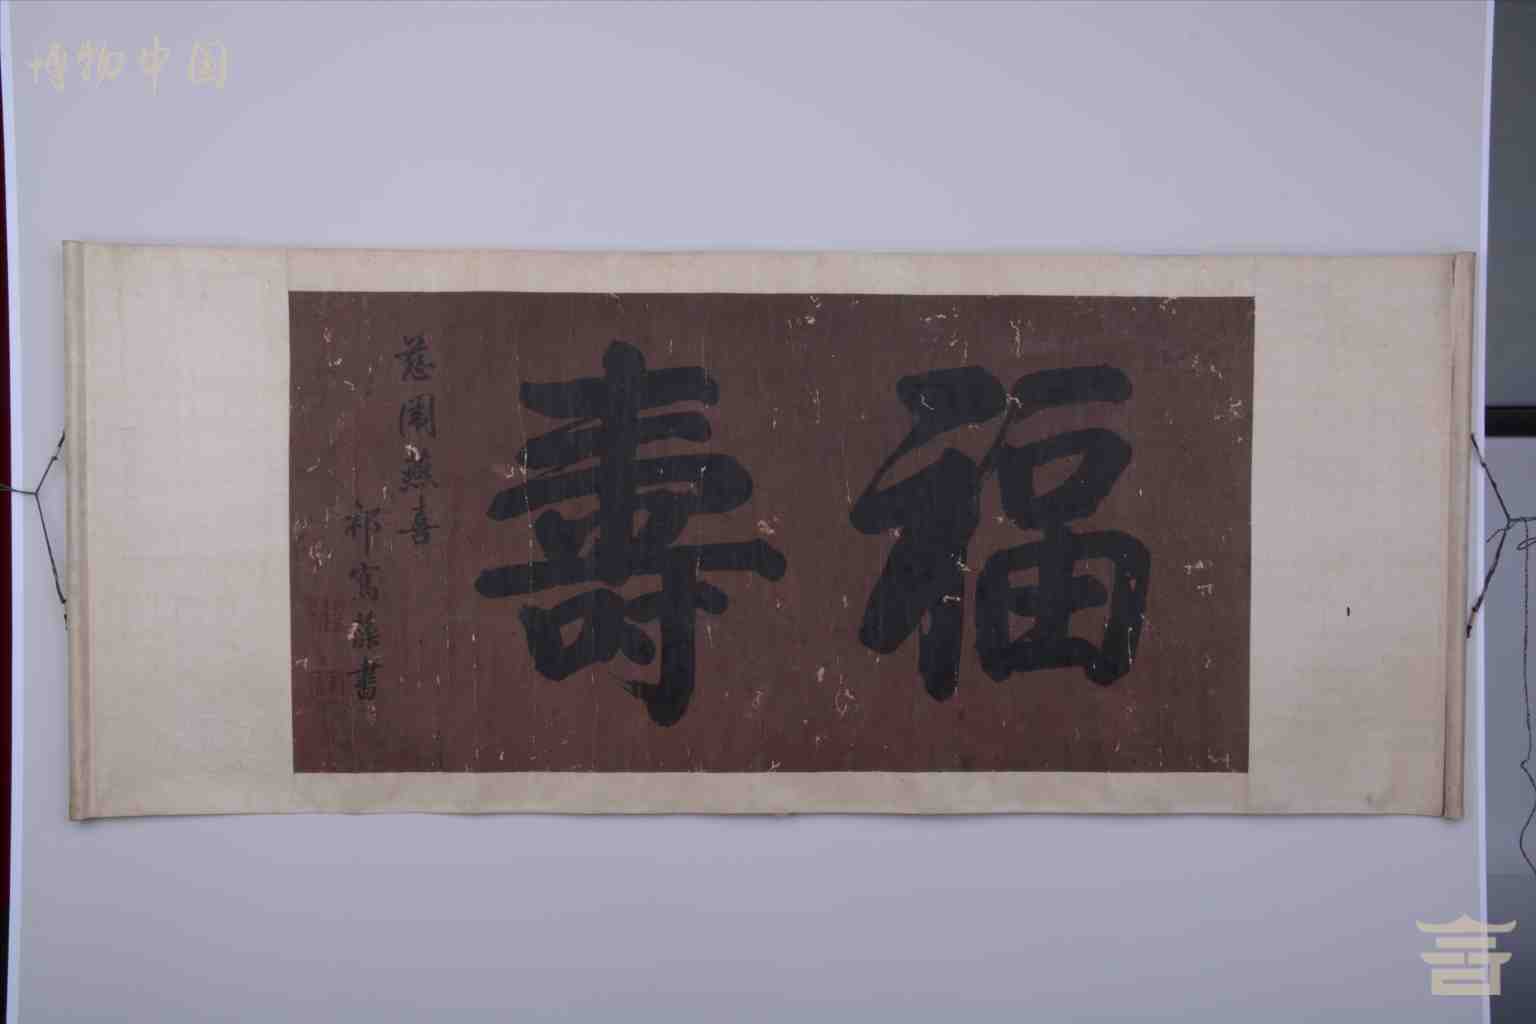 博物中国
福壽
慈闈燕喜
祁寯藻書